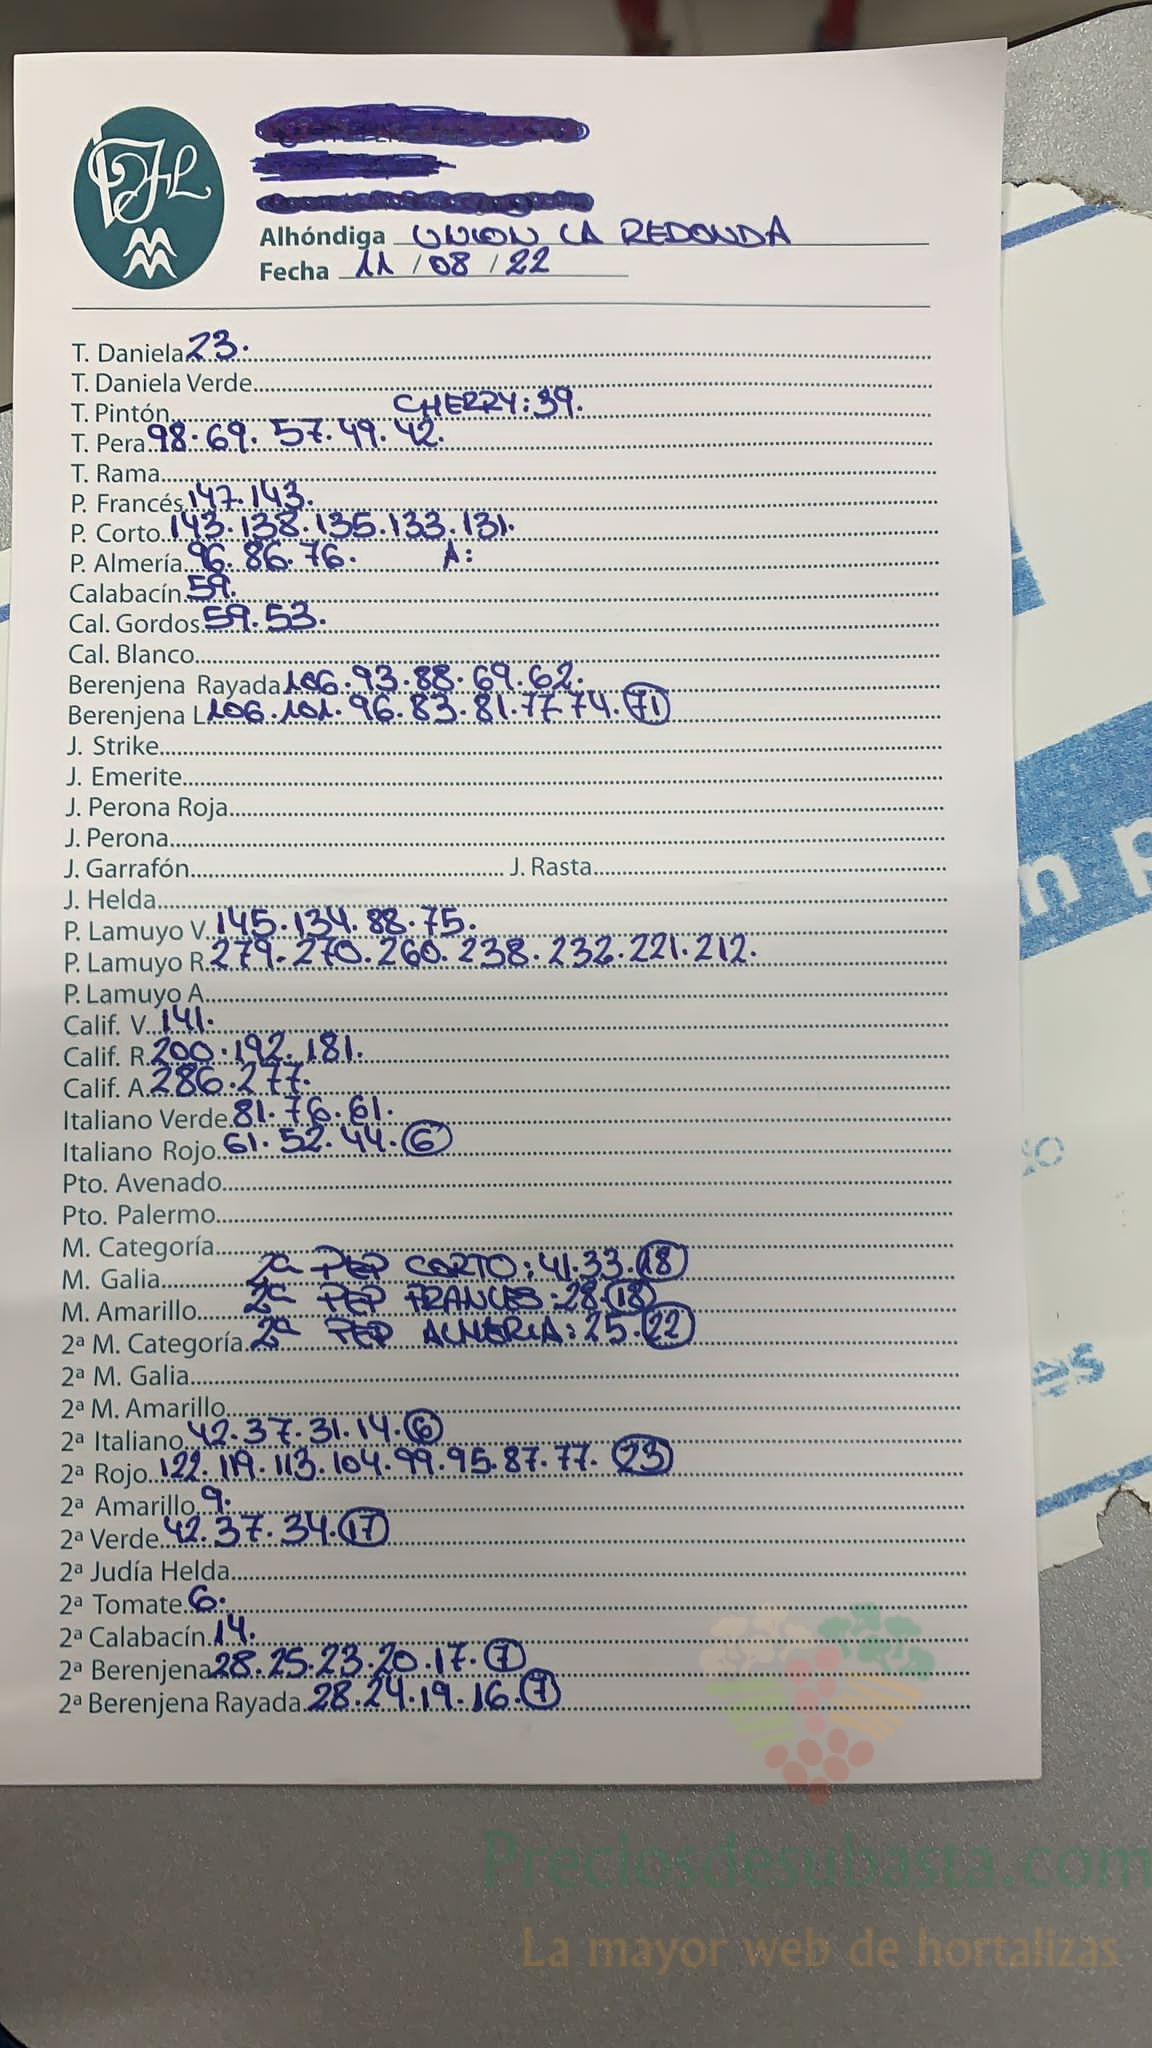 JFL
Alhóndiga UNION LA REDONDA
Fecha 11 / 08 / 22
T. Daniela 23.
T. Daniela Verde
T. Pintón CHERRY: 39.
T. Pera 98. 69. 57. 49. 42.
T. Rama
P. Francés 147. 143.
P. Corto 143. 138. 135. 133. 131.
P. Almería 96. 86. 76. A:
Calabacín 59.
Cal. Gordos 59. 53.
Cal. Blanco
Berenjena Rayada 106. 93. 88. 69. 62.
Berenjena L 106. 101. 96. 83. 81. 77. 74. 71
J. Strike
J. Emerite
J. Perona Roja
J. Perona
J. Garrafón J. Rasta
J. Helda
P. Lamuyo V. 145. 134. 88. 75.
P. Lamuyo R. 279. 270. 260. 238. 232. 221. 212.
P. Lamuyo A
Calif. V. 141.
Calif. R. 200. 192. 181.
Calif. A. 286. 277.
Italiano Verde 81. 76. 61.
Italiano Rojo 61. 52. 44. 6
Pto. Avenado
Pto. Palermo
M. Categoría
M. Galia 2ª PEP CORTO: 41. 33. 18
M. Amarillo 2ª PEP FRANCES: 28. 18
2ª M. Categoría 2ª PEP ALMERIA: 25. 22
2ª M. Galia
2ª M. Amarillo
2ª Italiano 42. 37. 31. 14. 6
2ª Rojo 122. 119. 113. 104. 99. 95. 87. 77. 23
2ª Amarillo 9.
2ª Verde 42. 37. 34. 17
2ª Judía Helda
2ª Tomate 6.
2ª Calabacín 14.
2ª Berenjena 28. 25. 23. 20. 17. 7
2ª Berenjena Rayada 28. 24. 19. 16. 7
Preciosdesubasta.com
La mayor web de hortalizas